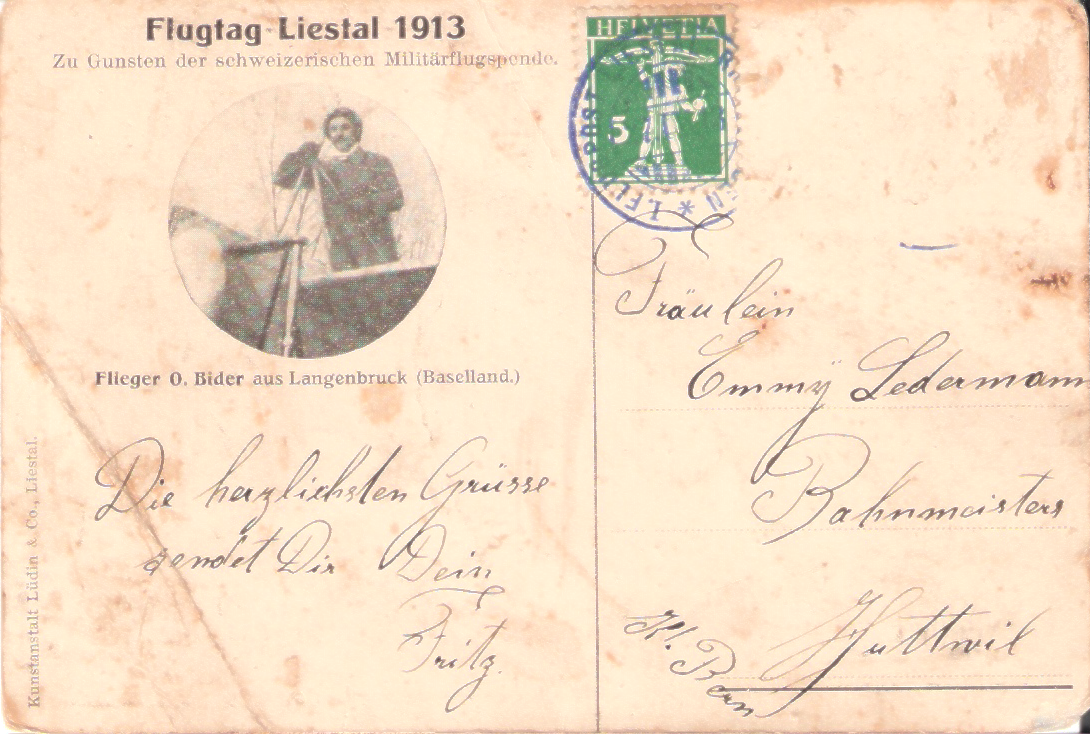 Flugtag Liestal 1913
Zu Gunsten der schweizerischen Militärflugspende.
Flieger O. Bider aus Langenbruck (Baselland.)
Die herzlichsten Grüsse
sendet Dir Dein
Fritz.
Kunstanstalt Lüdin & Co., Liestal.
HELVETIA
5
Fräulein
Emmy Ledermann
Bahnmeisters
Huttwil
Kt. Bern